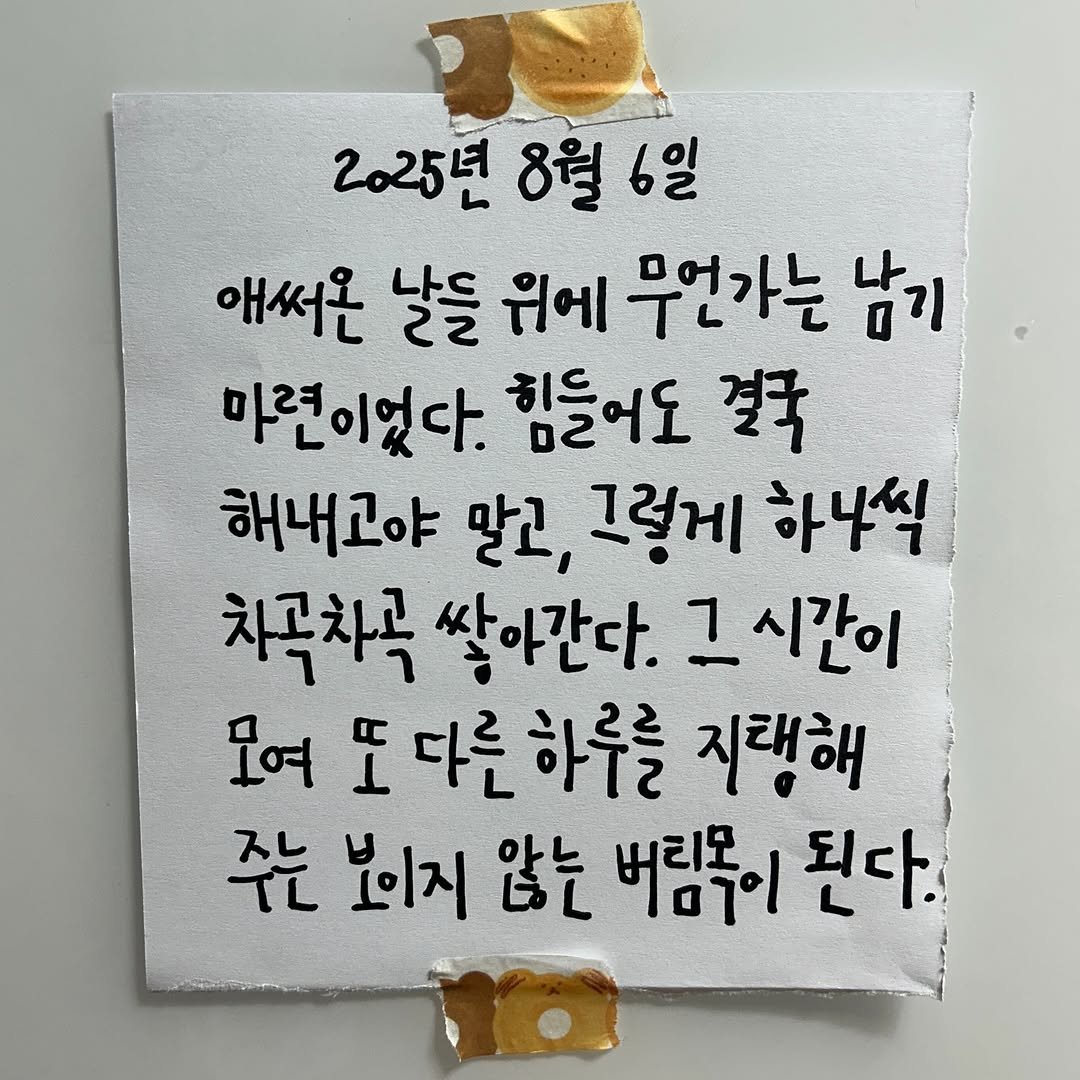 2025년 8월 6일
애써온 날들 위에 무언가는 남기
마련이었다. 힘들어도 결국
해내고야 말고, 그렇게 하나씩
차곡차곡 쌓아간다. 그 시간이
모여 또 다른 하루를 지탱해
주는 보이지 않는 버팀목이 된다.